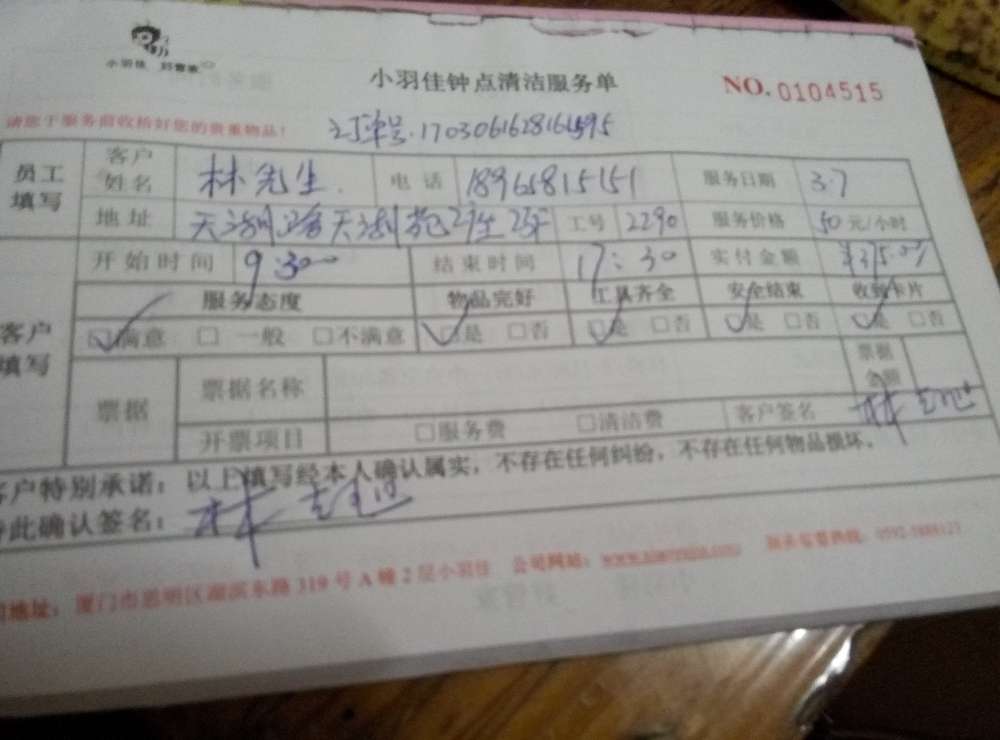 小羽佳 好管家
小羽佳钟点清洁服务单
NO. 0104515
请您于服务前收拾好您的贵重物品!
订单号.1703061628161595
员工填写 客户姓名 林先生. 电话 18965815151 服务日期 3.7
地址 天湖路天湖苑 工号 2290 服务价格 50元/小时
客户填写 开始时间 9:30 结束时间 17:30 实付金额 ¥375.00
服务态度 物品完好 工具齐全 安全结束 收到卡片
☑满意 □ 一般 □不满意 ☑是 □否 ☑是 □否 ☑是 □否 ☑是 □否
票据 票据名称 票据金额
开票项目 □服务费 □清洁费 客户签名 林
客户特别承诺:以上填写经本人确认属实,不存在任何纠纷,不存在任何物品损坏。
此确认签名: 林
地址:厦门市思明区湖滨东路319号A幢2层小羽佳 公司网站: